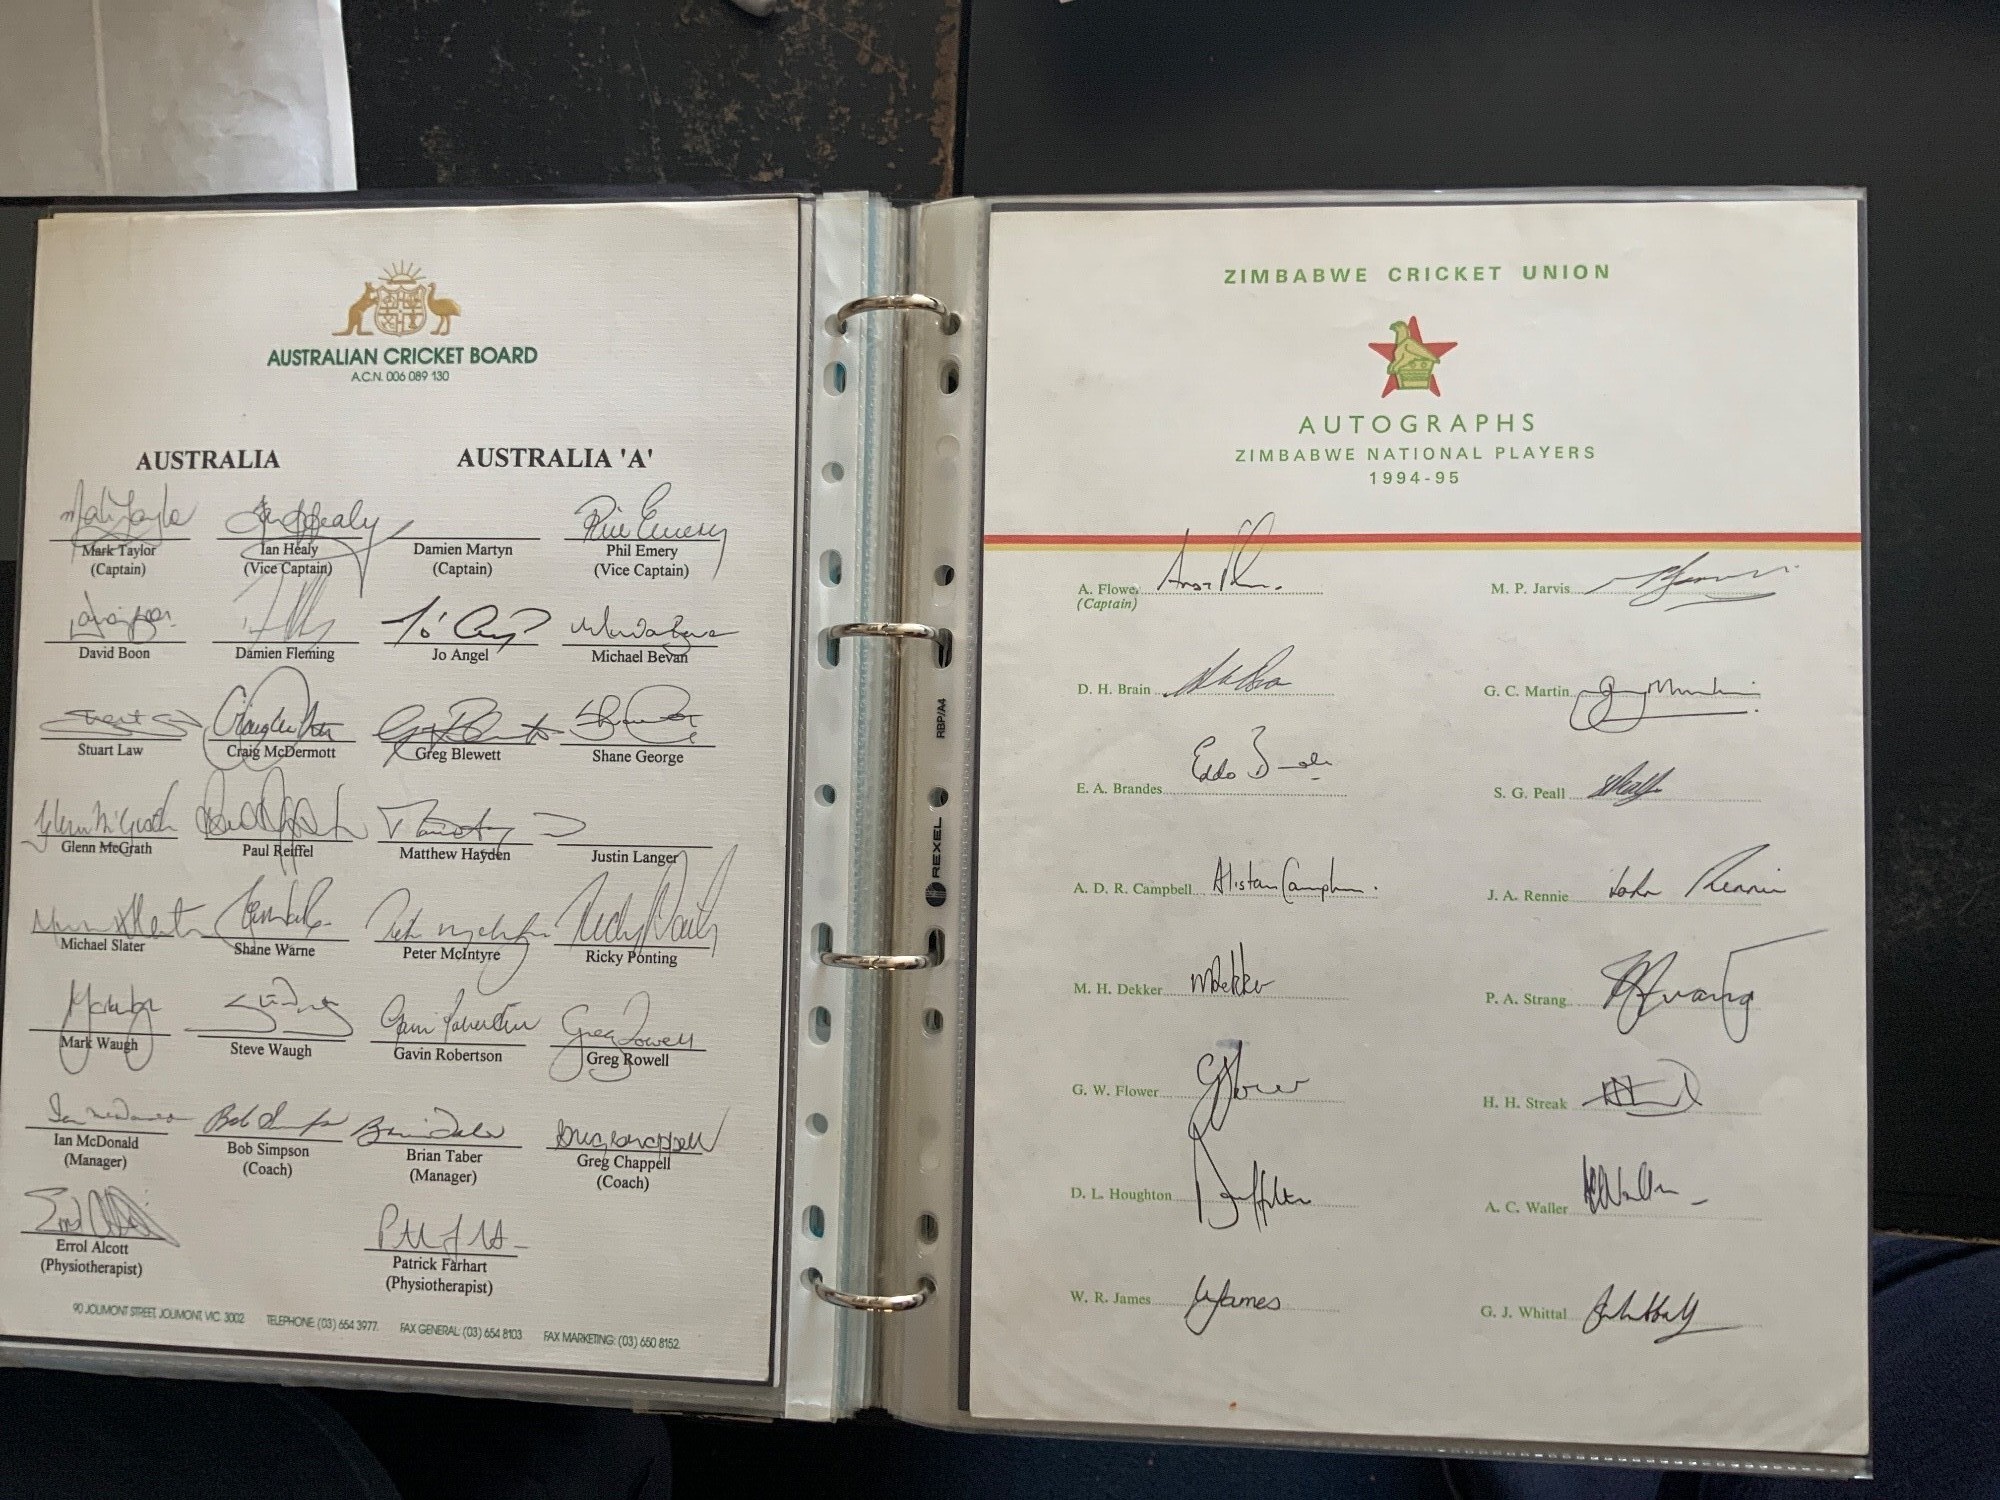 AUSTRALIAN CRICKET BOARD
A.C.N. 006 089 130
AUSTRALIA
AUSTRALIA 'A'
Mark Taylor
(Captain)
Ian Healy
(Vice Captain)
Damien Martyn
(Captain)
Phil Emery
Phil Emery
(Vice Captain)
David Boon
Damien Fleming
Jo Angel
Michael Bevan
Stuart Law
Craig McDermott
Greg Blewett
Shane George
Glenn McGrath
Glenn McGrath
Paul Reiffel
Matthew Hayden
Justin Langer
Michael Slater
Shane Warne
Peter McIntyre
Ricky Ponting
Mark Waugh
Steve Waugh
Gavin Robertson
Greg Rowell
Greg Rowell
Ian McDonald
(Manager)
Bob Simpson
Bob Simpson
(Coach)
Brian Taber
(Manager)
Greg Chappell
Greg Chappell
(Coach)
Errol Alcott
(Physiotherapist)
Patrick Farhart
(Physiotherapist)
90 JOLIMONT STREET, JOLIMONT, VIC. 3002 TELEPHONE: (03) 654 3977. FAX GENERAL: (03) 654 8103 FAX MARKETING: (03) 650 8152
RBP/A4
REXEL
ZIMBABWE CRICKET UNION
AUTOGRAPHS
ZIMBABWE NATIONAL PLAYERS
1994-95
A. Flower
(Captain)
M. P. Jarvis
D. H. Brain
G. C. Martin
E. A. Brandes
Eddo
S. G. Peall
A. D. R. Campbell Alistair Campbell
J. A. Rennie John Rennie
M. H. Dekker MDekker
P. A. Strang
G. W. Flower GFlower
H. H. Streak
D. L. Houghton
A. C. Waller
W. R. James WJames
G. J. Whittal